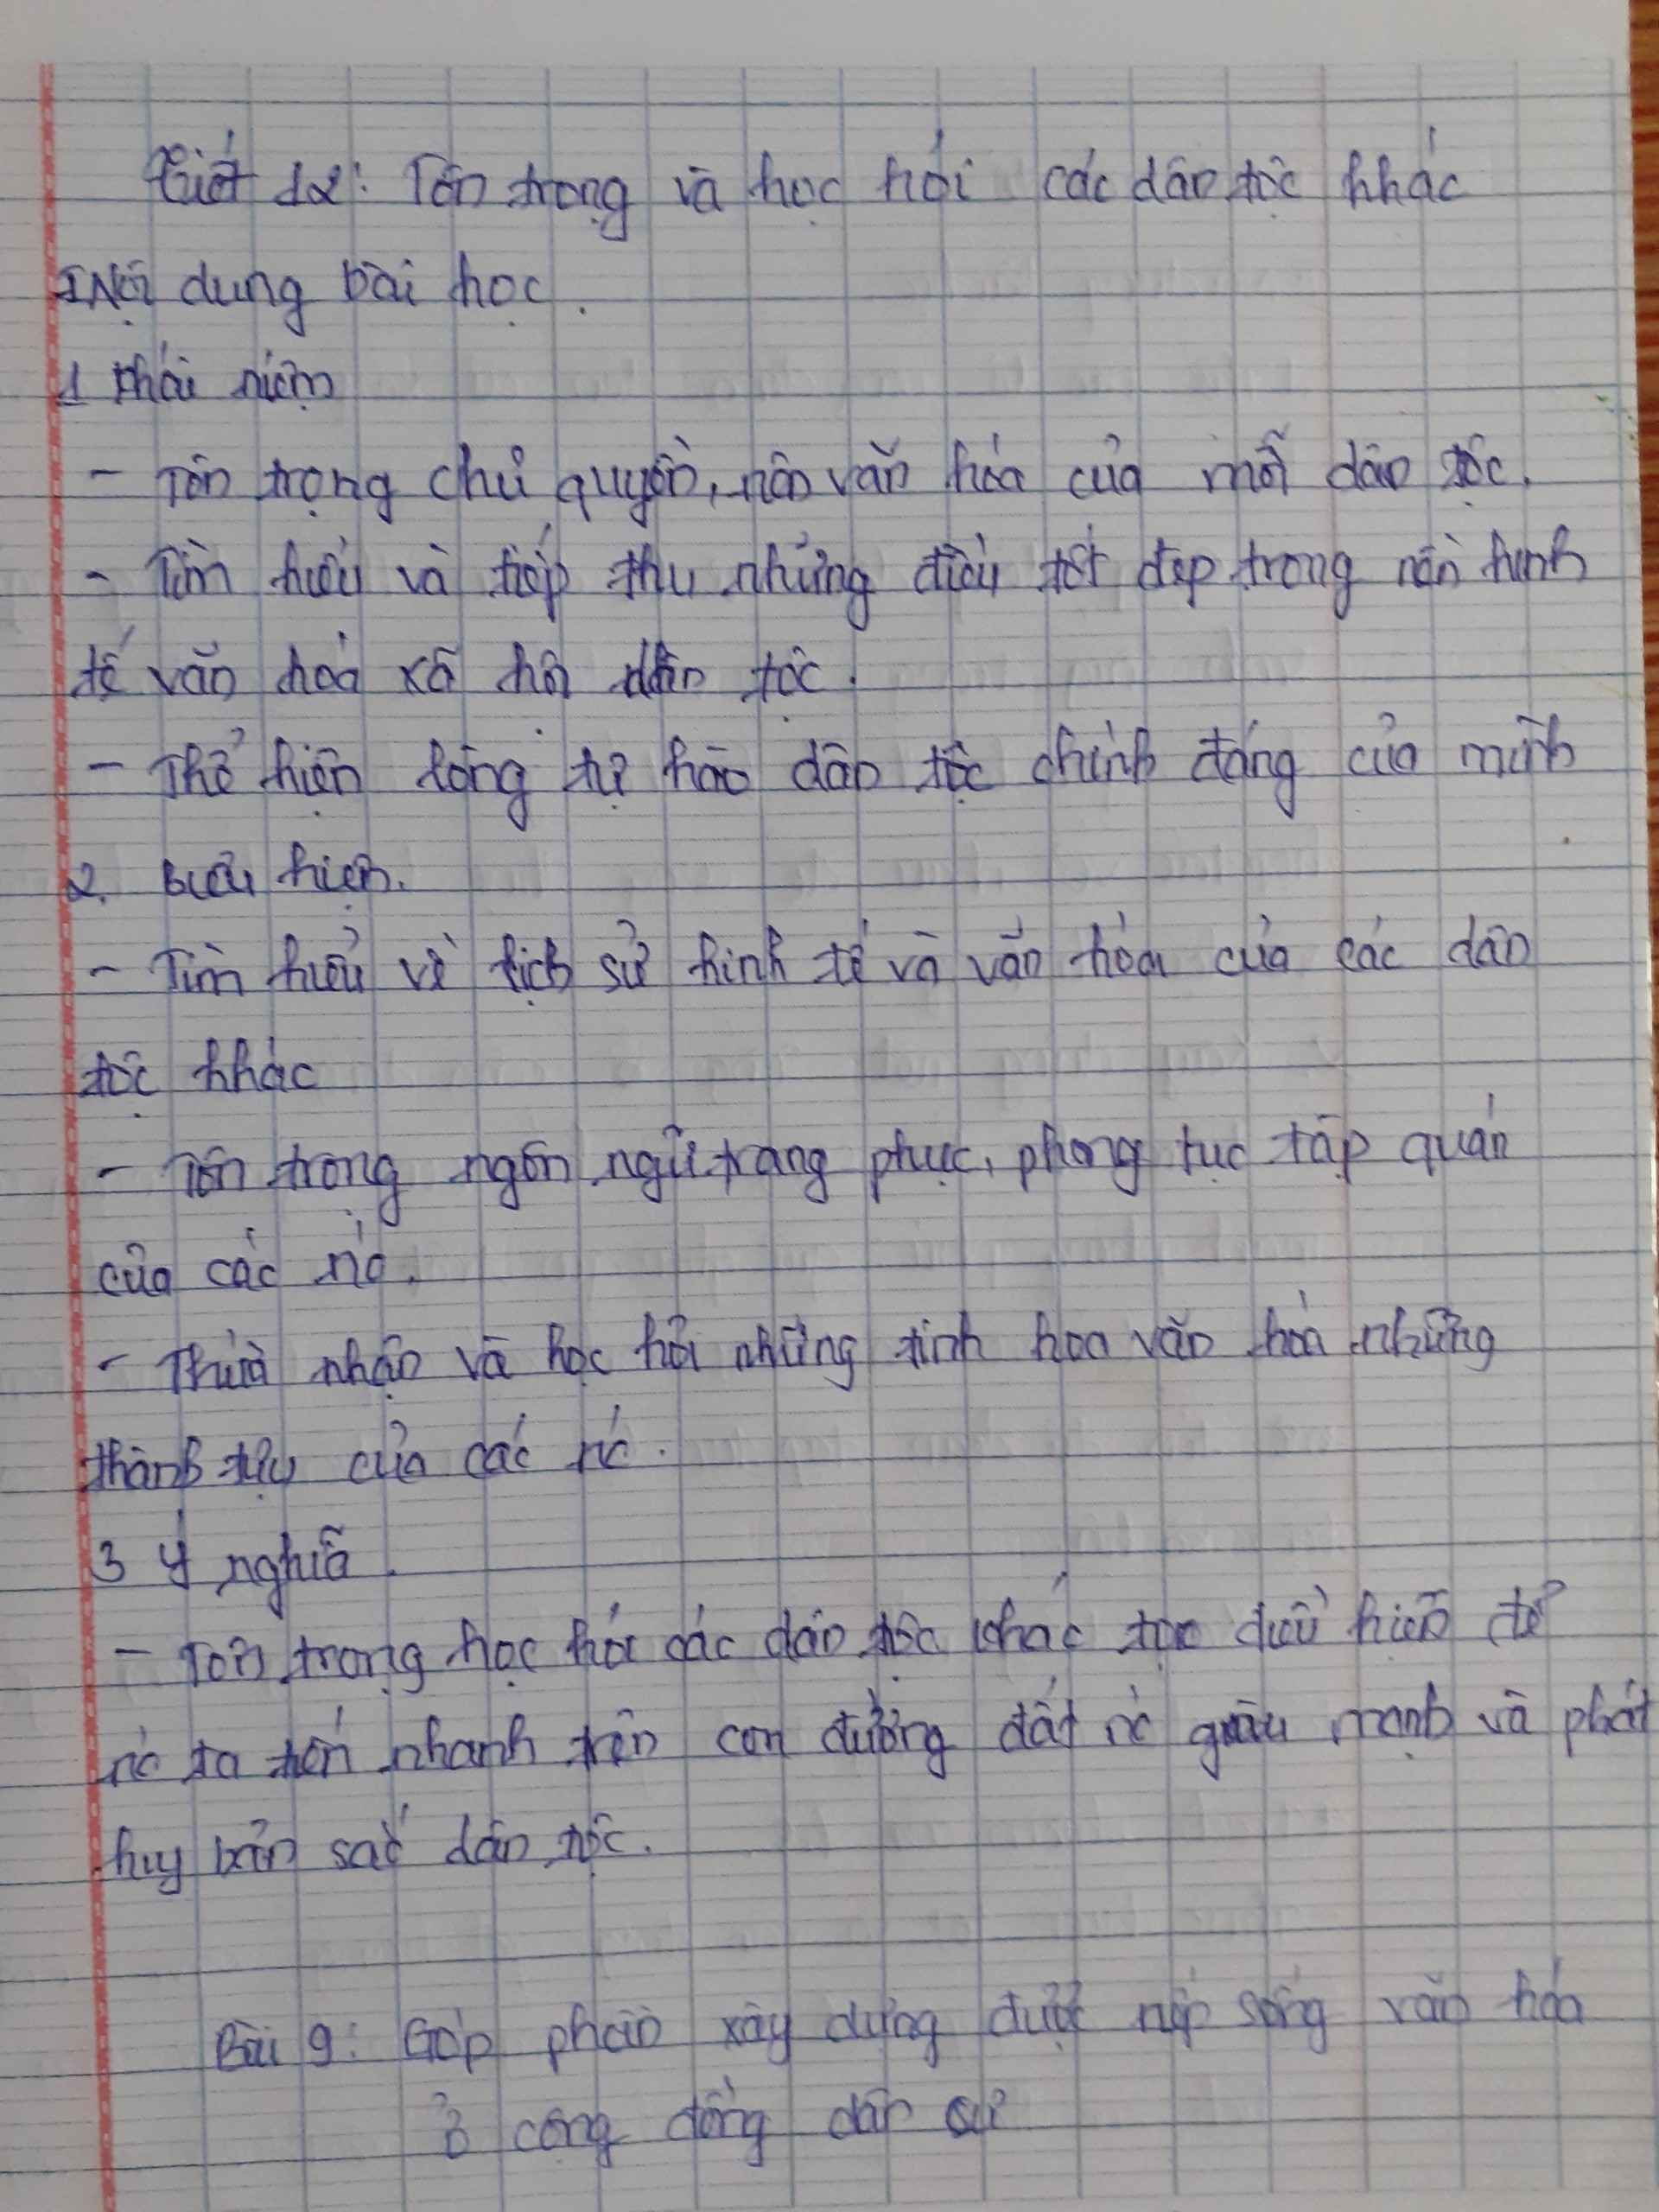 Tiết 12: Tôn trọng và học hỏi các dân tộc khác
I Nội dung bài học.
1 Khái niệm
- Tôn trọng chủ quyền, nền văn hóa của mỗi dân tộc.
- Tìm hiểu và tiếp thu những điều tốt đẹp trong nền kinh
tế văn hoá xã hội dân tộc.
- Thể hiện lòng tự hào dân tộc chính đáng của mình
2. Biểu hiện.
- Tìm hiểu về lịch sử kinh tế và văn hóa của các dân
tộc khác
- Tôn trọng ngôn ngữ, trang phục, phong tục tập quán
của các nc.
- Thừa nhận và học hỏi những tinh hoa văn hóa những
thành tựu của các nc.
3 Ý nghĩa.
- Tôn trọng học hỏi các dân tộc khác tạo điều kiện để
nc ta tiến nhanh trên con đường đất nc giàu mạnh và phát
huy bản sắc dân tộc.
Bài 9: Góp phần xây dựng được nếp sống văn hóa
ở cộng đồng dân cư